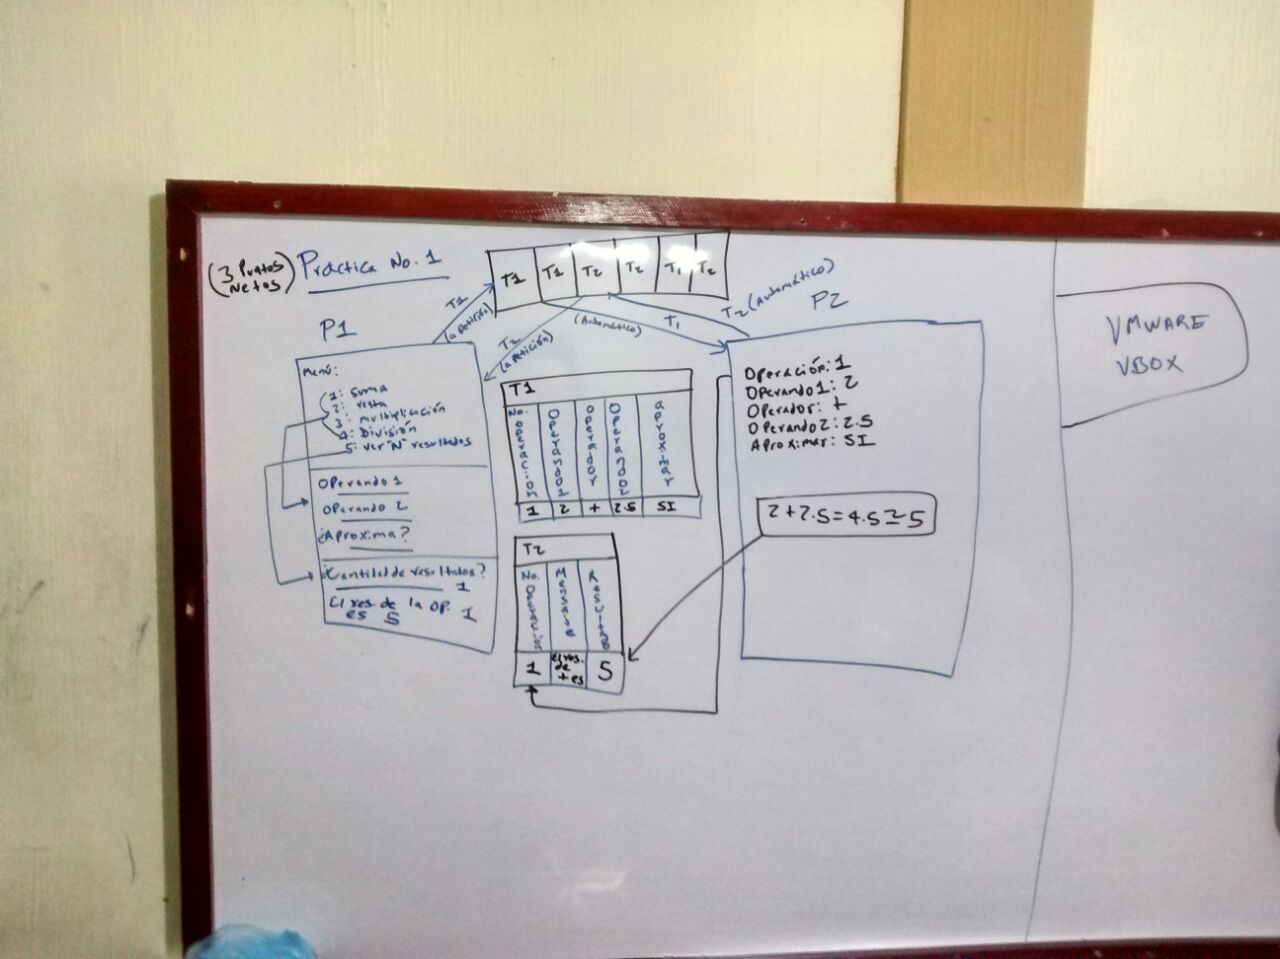 (3 Puntos Netos) Práctica No. 1
T1 T1 T2 T2 T1 T2
T1
(a petición)
T2
(a petición)
(Automático)
T1
T2 (Automático)
P1
Menú:
1: suma
2: resta
3: multiplicación
4: División
5: ver "N" resultados
Operando 1
Operando 2
¿Aproxima?
¿Cantidad de resultados?
1
El res. de la op. 1
es 5
T1
No. operación
Operando1
operador
Operando2
aproximar
1 2 + 2.5 SI
T2
No. Operación
Mensaje
Resultado
1
El res. de + es
5
P2
Operación: 1
Operando1: 2
Operador: +
Operando2: 2.5
Aproximar: SI
2+2.5=4.5≅5
VMWARE
VBOX